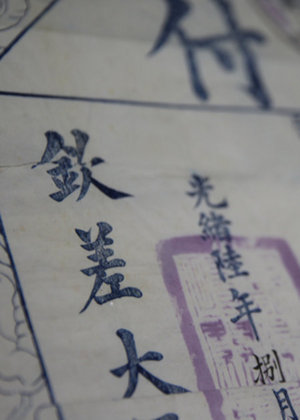 付
光緒陸年捌月
欽差大